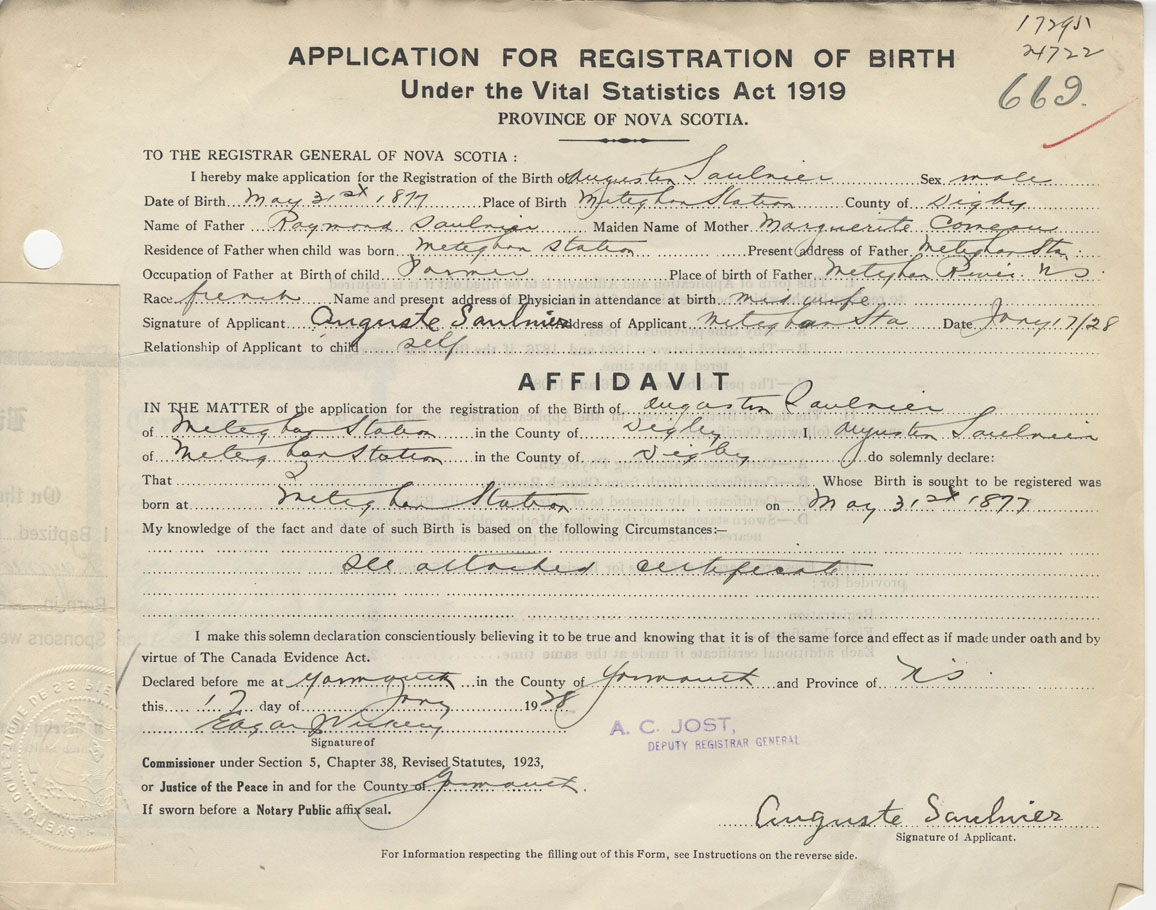 17295
24722
669.
APPLICATION FOR REGISTRATION OF BIRTH
Under the Vital Statistics Act 1919
PROVINCE OF NOVA SCOTIA.
TO THE REGISTRAR GENERAL OF NOVA SCOTIA :
I hereby make application for the Registration of the Birth of Augustin Saulnier Sex male
Date of Birth May 31st 1877 Place of Birth Meteghan Station County of Digby
Name of Father Raymond Saulnier Maiden Name of Mother Marguerite Comeau
Residence of Father when child was born Meteghan Station Present address of Father Meteghan Sta
Occupation of Father at Birth of child Farmer Place of birth of Father Meteghan River NS
Race french Name and present address of Physician in attendance at birth midwife
Signature of Applicant Auguste Saulnier Address of Applicant Meteghan Sta Date Jany 17/28
Relationship of Applicant to child self
AFFIDAVIT
IN THE MATTER of the application for the registration of the Birth of Augustin Saulnier
of Meteghan Station in the County of Digby I, Augustin Saulnier
of Meteghan Station in the County of Digby do solemnly declare:
That Whose Birth is sought to be registered was
born at Meteghan Station on May 31st 1877
My knowledge of the fact and date of such Birth is based on the following Circumstances:—
see attached certificate
I make this solemn declaration conscientiously believing it to be true and knowing that it is of the same force and effect as if made under oath and by
virtue of The Canada Evidence Act.
Declared before me at Yarmouth in the County of Yarmouth and Province of NS
this 17 day of Jany 1928
Edgar
A. C. JOST,
DEPUTY REGISTRAR GENERAL
Signature of
Commissioner under Section 5, Chapter 38, Revised Statutes, 1923,
or Justice of the Peace in and for the County of Yarmouth.
If sworn before a Notary Public affix seal.
Auguste Saulnier
Signature of Applicant.
For Information respecting the filling out of this Form, see Instructions on the reverse side.